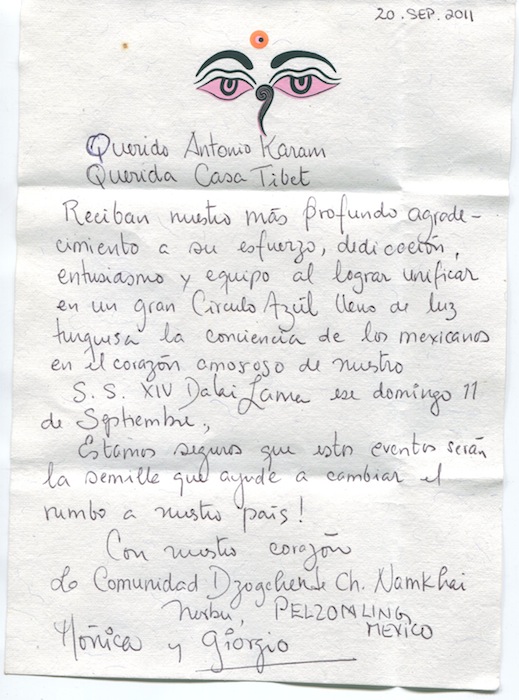 20. SEP. 2011
Querido Antonio Karam
Querida Casa Tibet
Reciban nuestro más profundo agrade-
cimiento a su esfuerzo, dedicación,
entusiasmo y equipo al lograr unificar
en un gran Circulo Azúl lleno de luz
turquesa la conciencia de los mexicanos
en el corazón amoroso de nuestro
S.S. XIV Dalai Lama ese domingo 11
de Septiembre,
Estamos seguros que estos eventos serán
la semilla que ayude a cambiar el
rumbo a nuestro país!
Con nuestro corazón
La Comunidad Dzogchen de Ch. Namkhai
Norbu, PELZOMLING,
MEXICO
Mónica y Giorgio